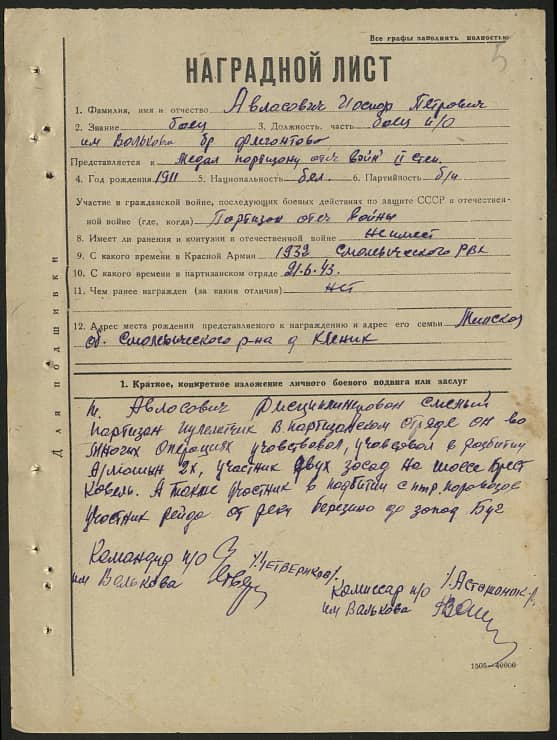 Все графы заполнять полностью
5
НАГРАДНОЙ ЛИСТ
1. Фамилия, имя и отчество Авласович Иосиф Петрович
2. Звание боец 3. Должность, часть боец п/о
им Волькова бр Флегонтова
Представляется к Медал партизану отеч войн II степ.
4. Год рождения 1911 5. Национальность бел. 6. Партийность б/п
Участие в гражданской войне, последующих боевых действиях по защите СССР и отечествен-
ной войне (где, когда) Партизан отеч войны
8. Имеет ли ранения и контузии в отечественной войне Не имеет
9. С какого времени в Красной Армии 1932 Смолевического РВК
10. С какого времени в партизанском отряде 21.6.43.
11. Чем ранее награжден (за какия отличия) нет
12. Адрес места рождения представляемого к награждению и адрес его семьи Минской
об. Смолевического р-на д Кленик
Для подшивки
1. Краткое, конкретное изложение личного боевого подвига или заслуг
т. Авласович Дисциплинирован смелый
партизан пулеметчик в партизанском отряде он во
многих операциях учавствовал, учавсвовал в разбитии
А/машин 2х, участник двух засад на шоссе Брест
Ковель. А также участник в подбитии с птр. паровозов
участник рейда от реки березино до запад Буг
Командир п/о /Четвериков/.
им Волькова
Комиссар п/о
им Валькова
1505—40000